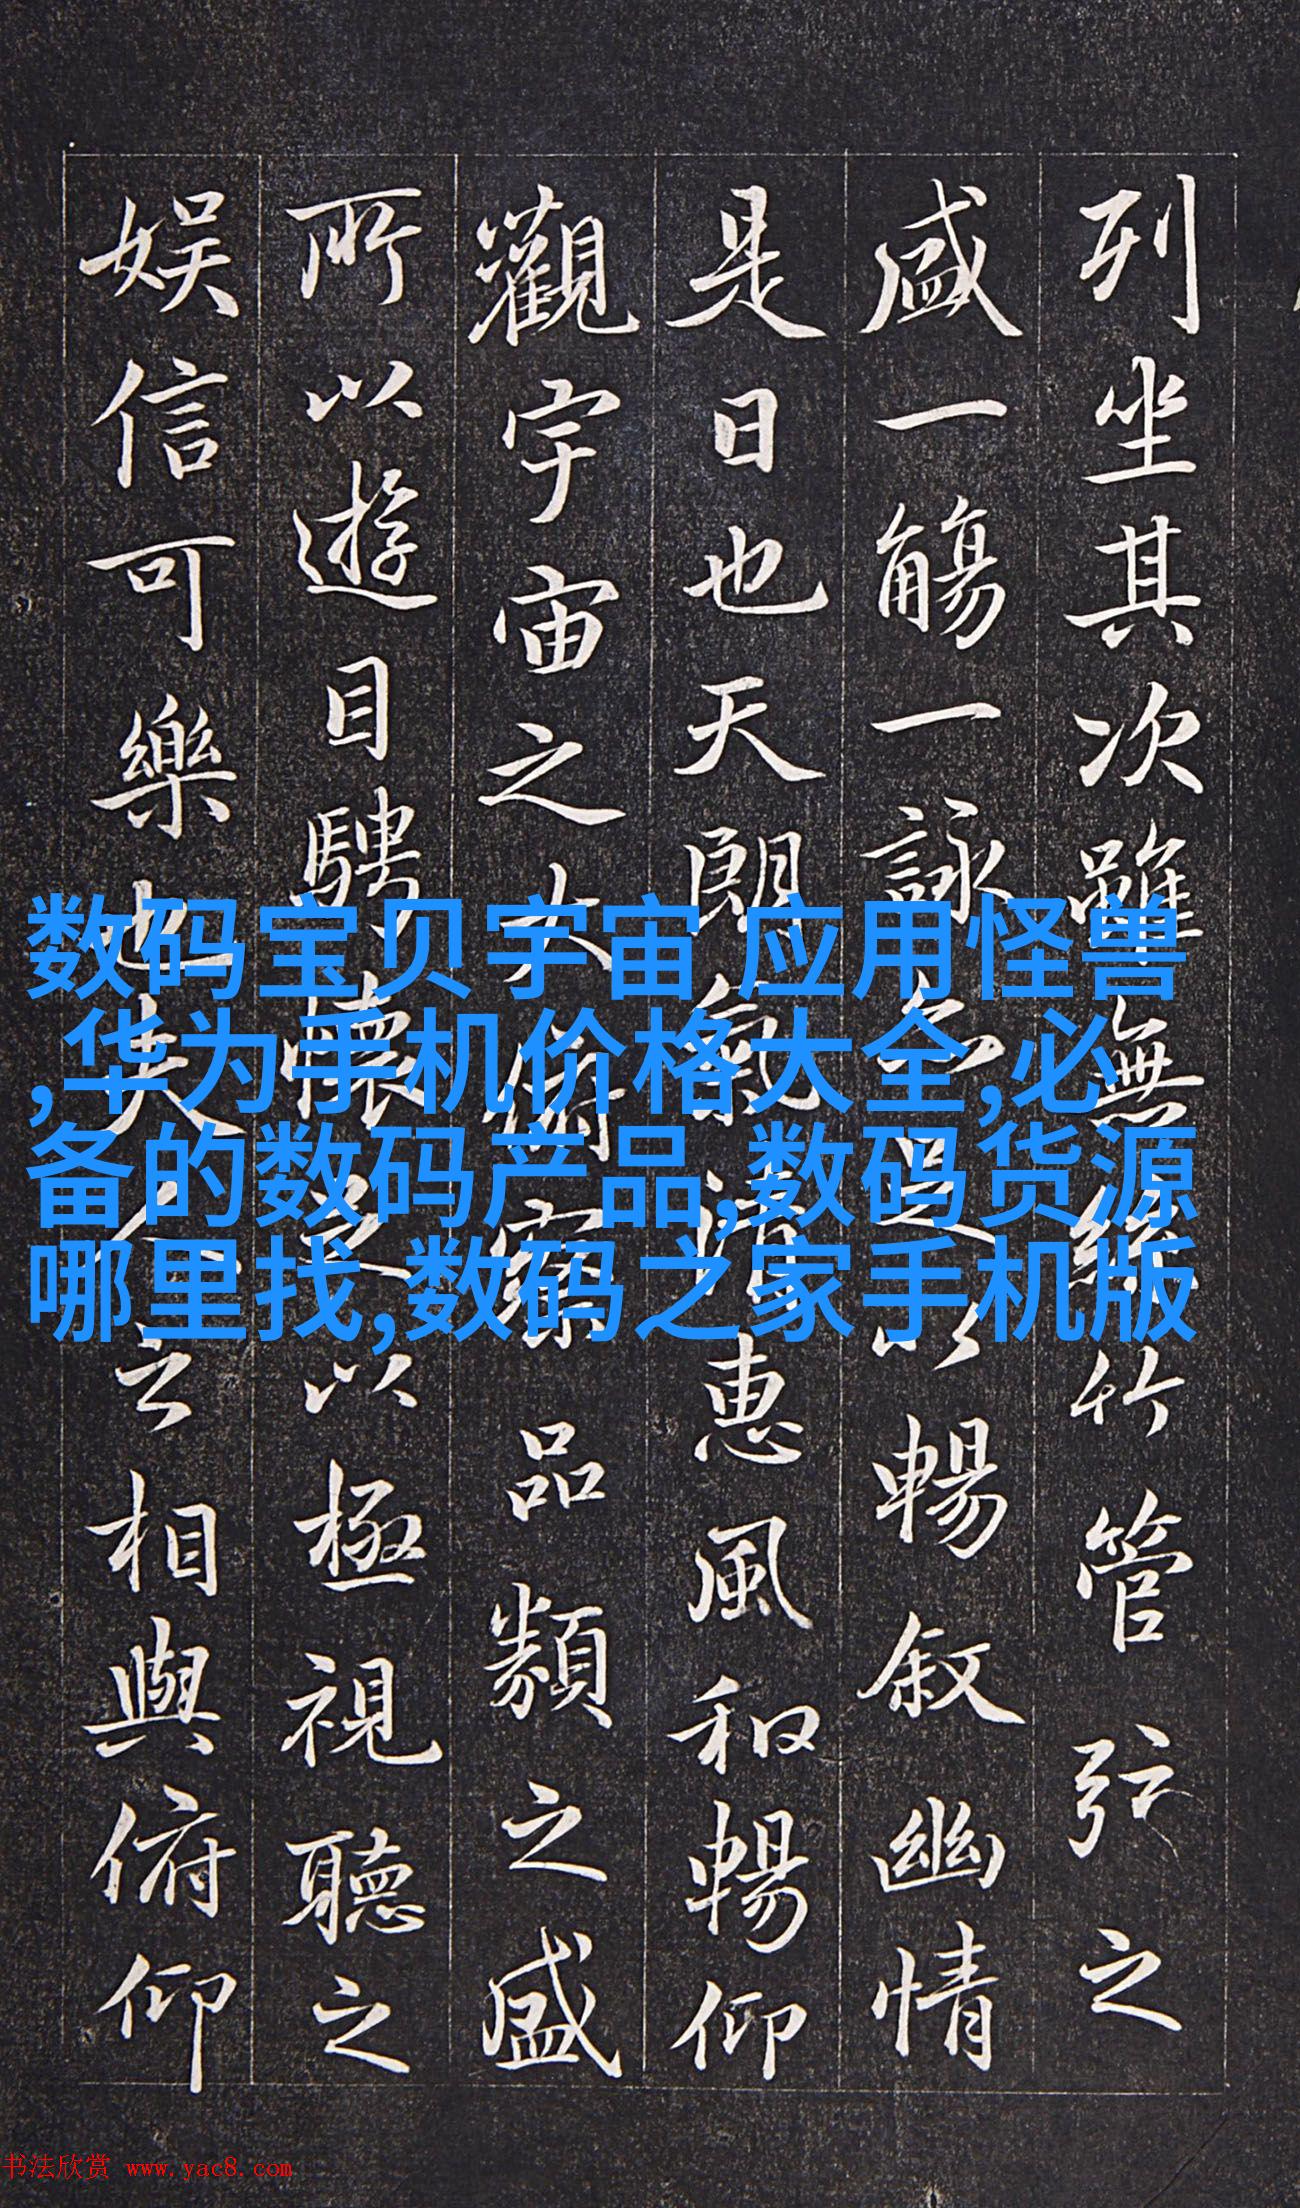 列坐其次雖無絲竹管弦之
盛一觴一詠亦足以暢叙幽情
是日也天朗氣清惠風和暢仰
觀宇宙之大俯察品類之盛
所以遊目騁懷足以極視聽之
娱信可樂也夫人之相與俯仰
数码宝贝宇宙 应用怪兽
,华为手机价格大全,必
备的数码产品,数码货源
哪里找,数码之家手机版
书法欣赏 www.yac8.com